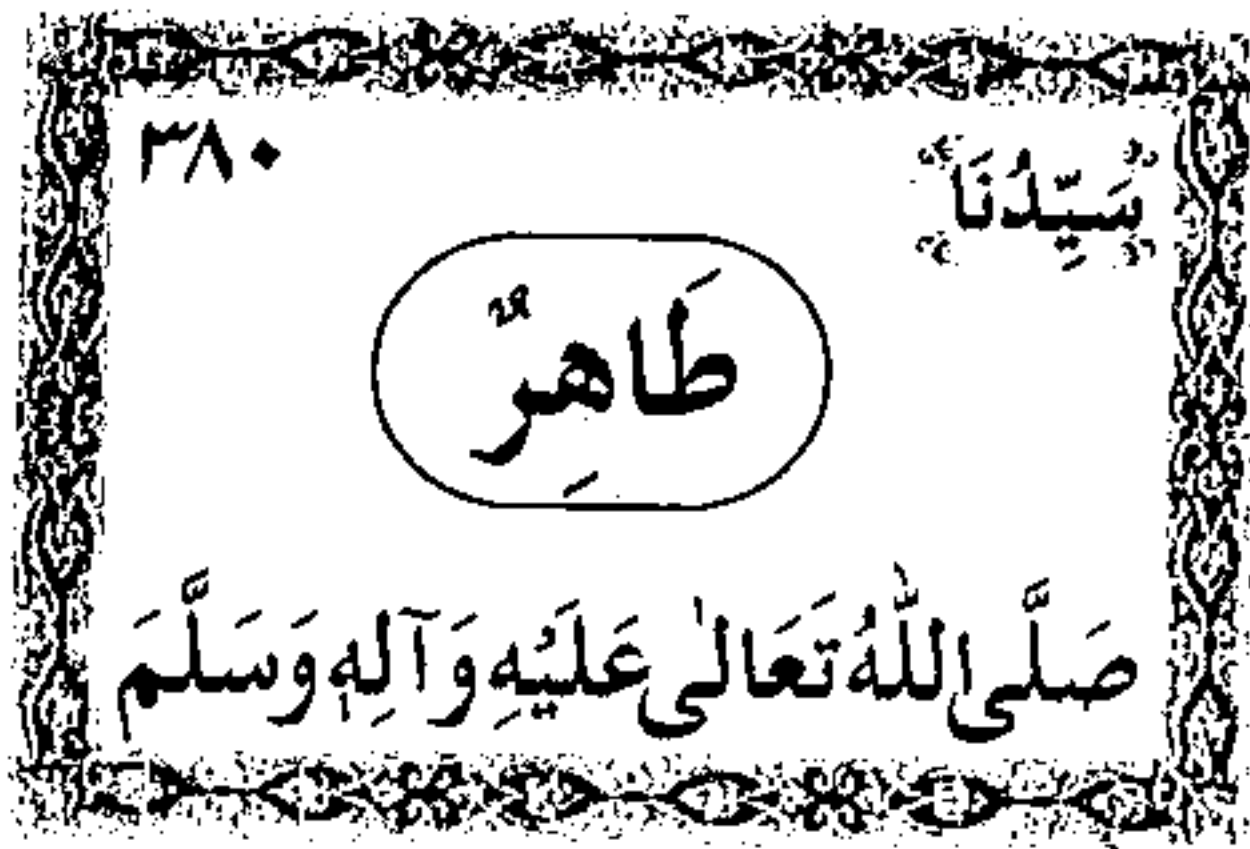 سَيِّدُنَا ٣٨٠
طَاهِرٌ
صَلَّى اللّٰهُ تَعَالٰى عَلَيْهِ وَآلِهٖ وَسَلَّمَ